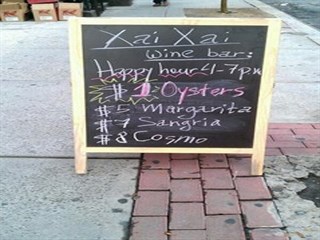 Xai Xai
wine bar:
Happy hour 4-7pm
$1 Oysters
$5 Margarita
$7 Sangria
$8 Cosmo